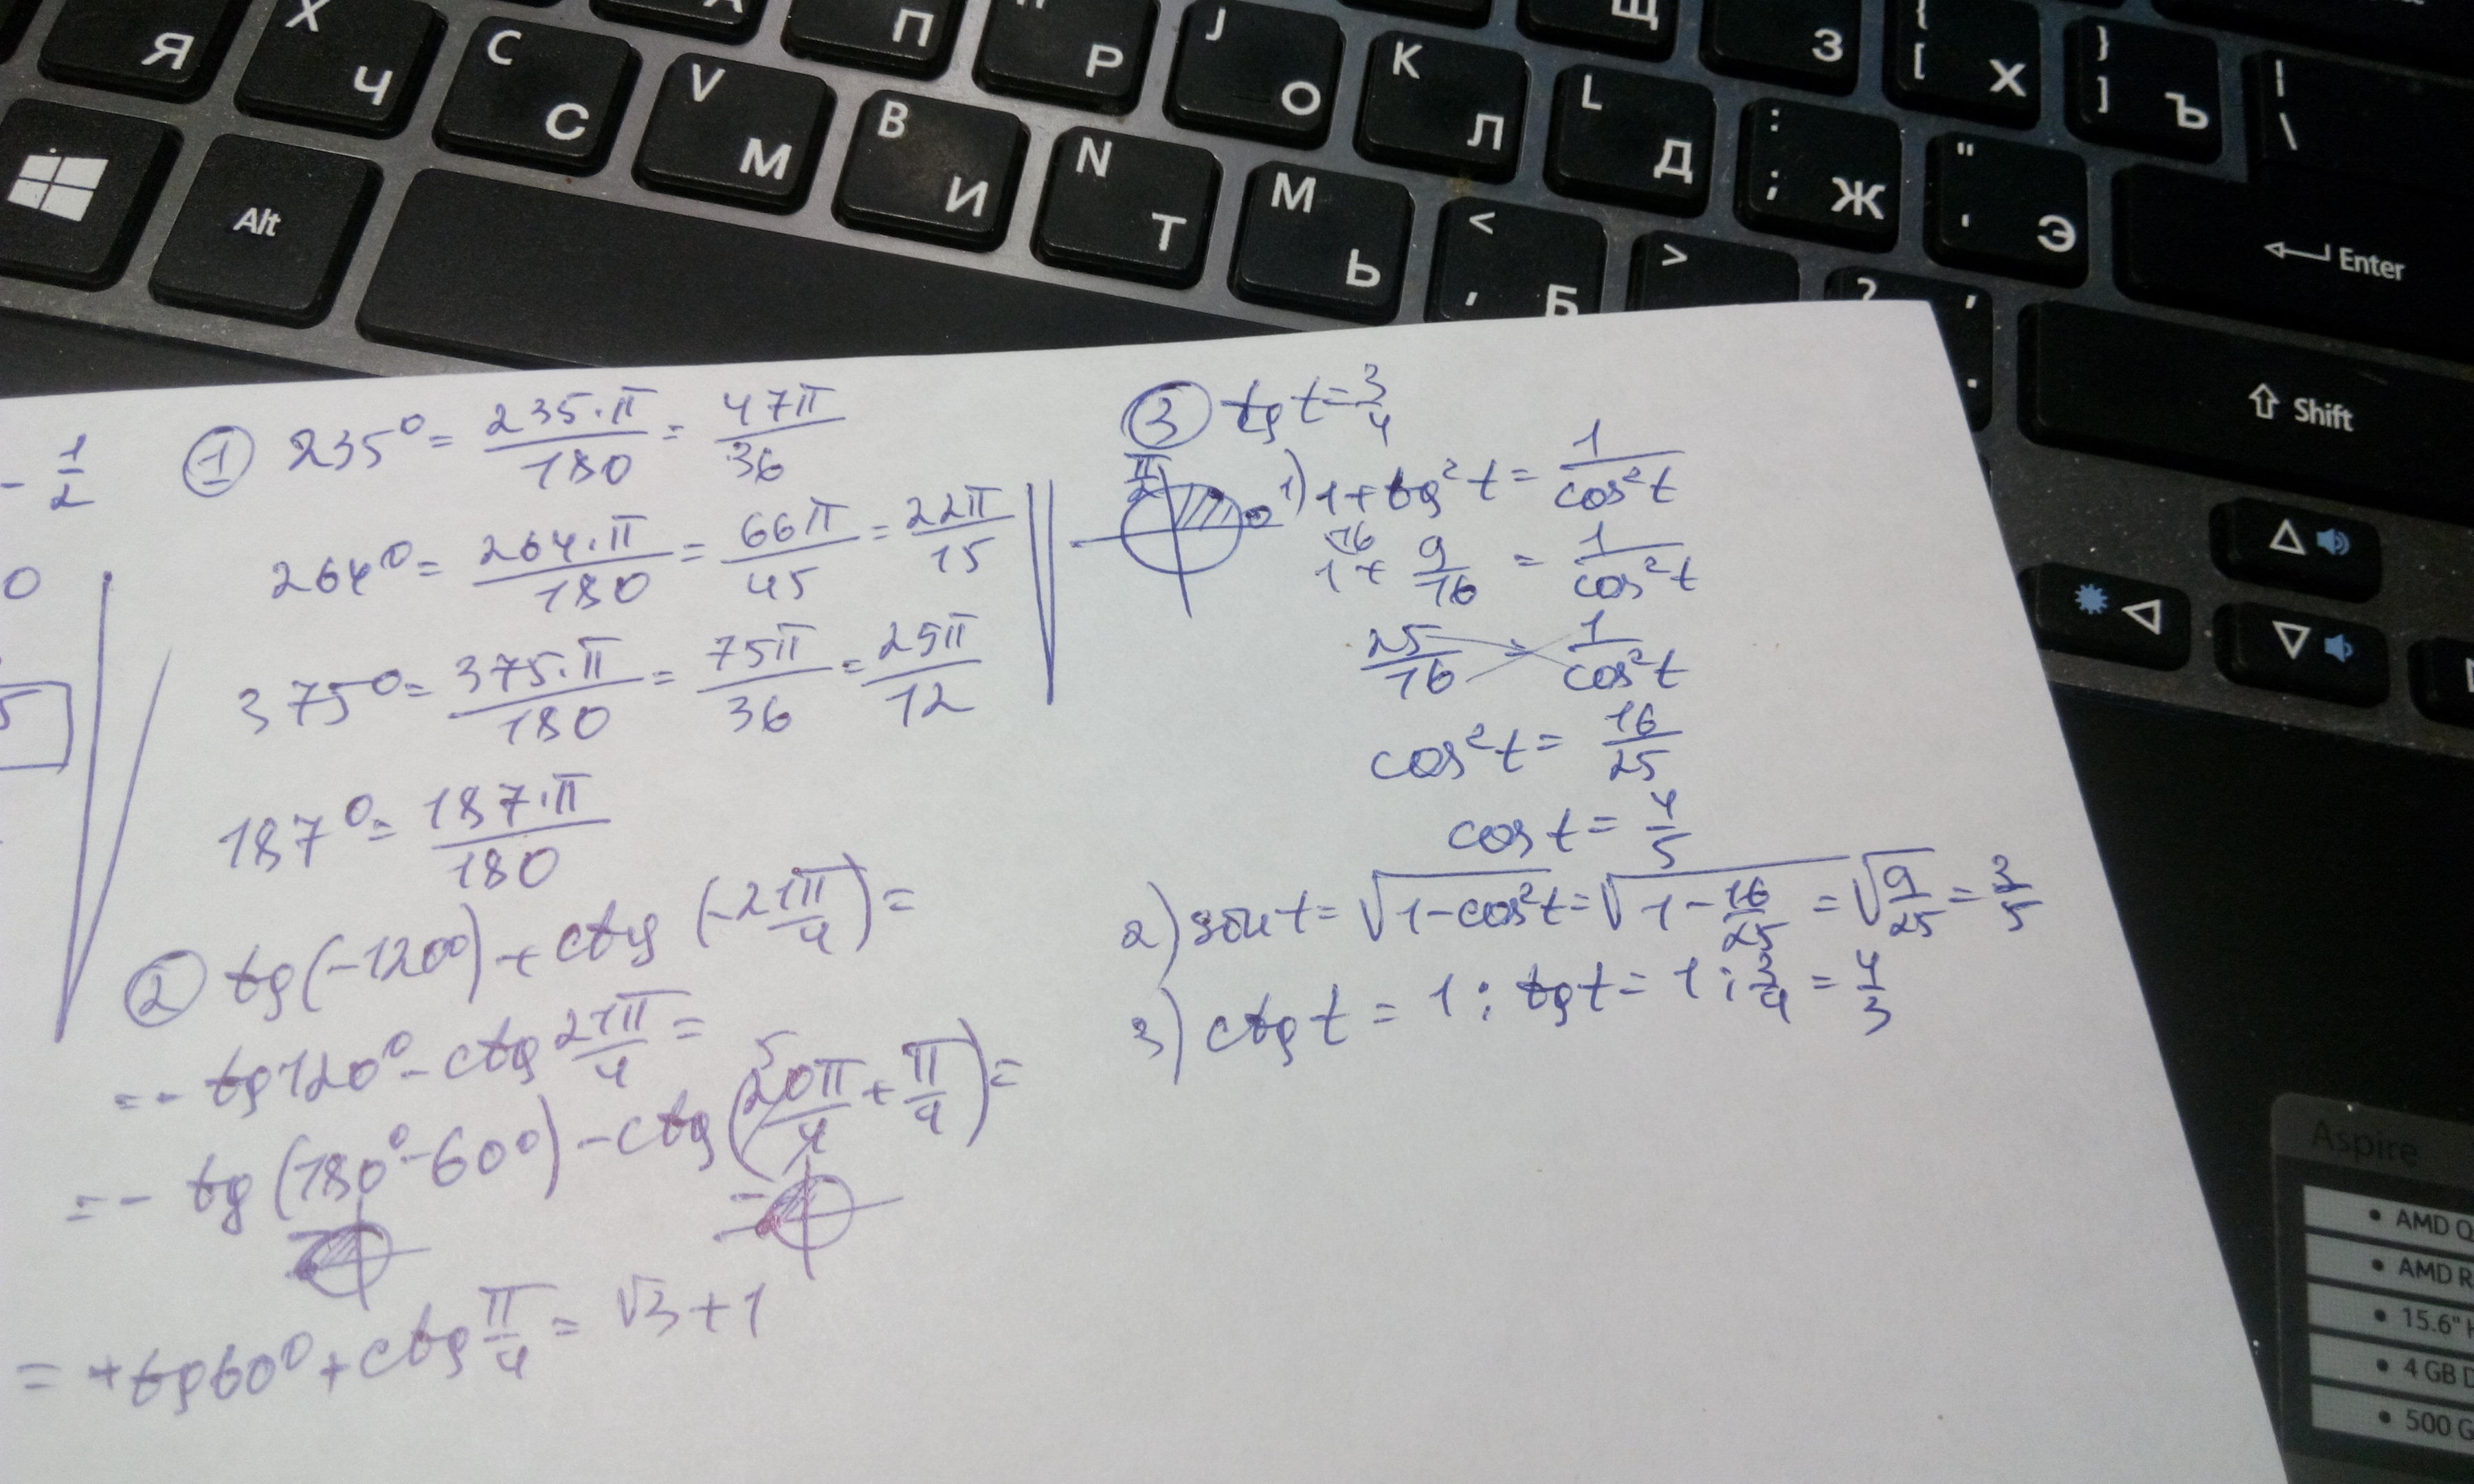 Я X Ч C С V М П B И Р N Т J О M Ь K Л < , Б Щ L Д > З : ; Ж ? { [ Х " ' Э } ] Ъ | \
Alt
Enter
Shift
- 1/2
0
5
① 235° = 235·π/180 = 47π/36
264° = 264·π/180 = 66π/45 = 22π/15
375° = 375·π/180 = 75π/36 = 25π/12
187° = 187·π/180
② tg(-120°) + ctg(-21π/4) =
= - tg120° - ctg 21π/4 =
= - tg(180° - 60°) - ctg(20π/4 + π/4) =
5
= + tg60° + ctg π/4 = √3 + 1
③ tg t = 3/4
π/2 0
1) 1 + tg²t = 1/cos²t
16
1 + 9/16 = 1/cos²t
25/16 1/cos²t
cos²t = 16/25
cos t = 4/5
2) sin t = √1 - cos²t = √1 - 16/25 = √9/25 = 3/5
3) ctg t = 1 : tg t = 1 : 3/4 = 4/3
Aspire
• AMD Q
• AMD R
• 15.6" H
• 4 GB D
• 500 G